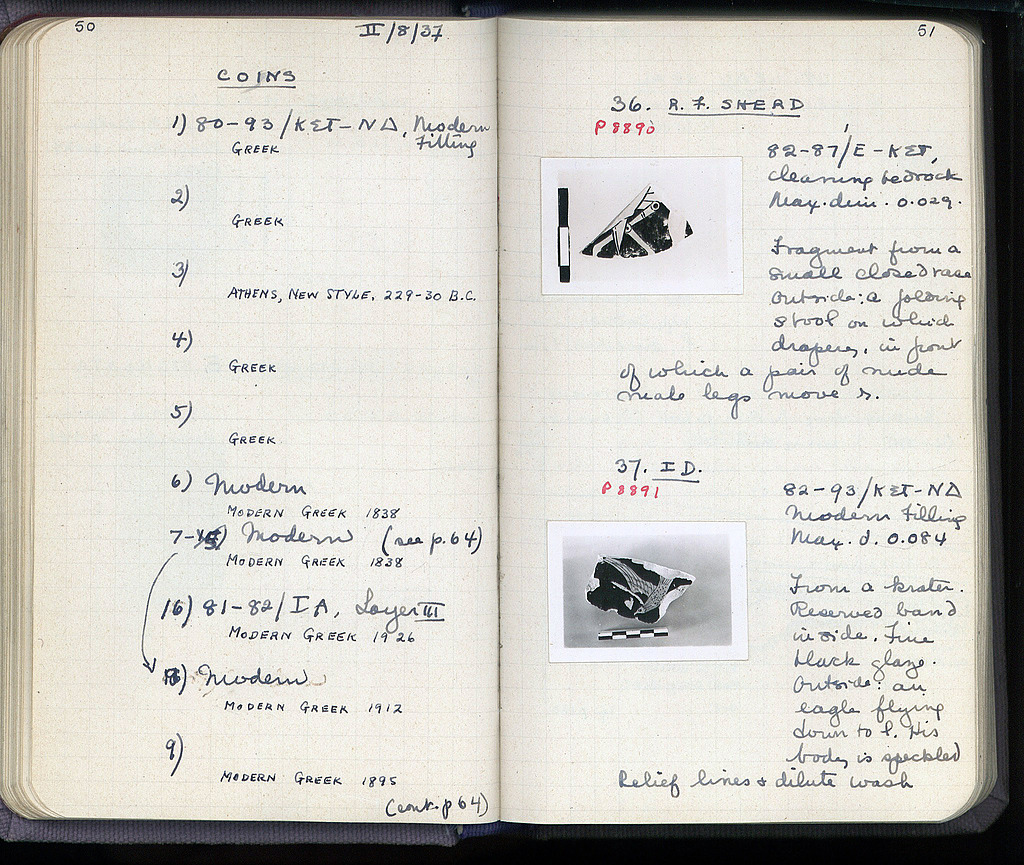 50
II/8/37
COINS
1) 80-93/ΚΣΤ-ΝΔ, Modern
Filling
GREEK
2)
GREEK
3)
ATHENS, NEW STYLE, 229-30 B.C.
4)
GREEK
5)
GREEK
6) Modern
MODERN GREEK 1838
7- Modern (see p.64)
MODERN GREEK 1838
16) 81-82/ΙΑ, Layer III
MODERN GREEK 1926
8) Modern
MODERN GREEK 1912
9)
MODERN GREEK 1895
(cont. p 64)
51
36. R. F. SHERD
P 8890
82-87/Ε-ΚΣΤ,
cleaning bedrock
Max. dim. 0.029.
Fragment from a
small closed vase
Outside: a folding
stool on which
drapery, in front
of which a pair of nude
male legs move r.
37. ID.
P 8891
82-93/ΚΣΤ-ΝΔ
Modern Filling
Max. d. 0.084
From a krater.
Reserved band
inside. Fine
black glaze.
Outside: an
eagle flying
down to l. His
body is speckled
Relief lines & dilute wash